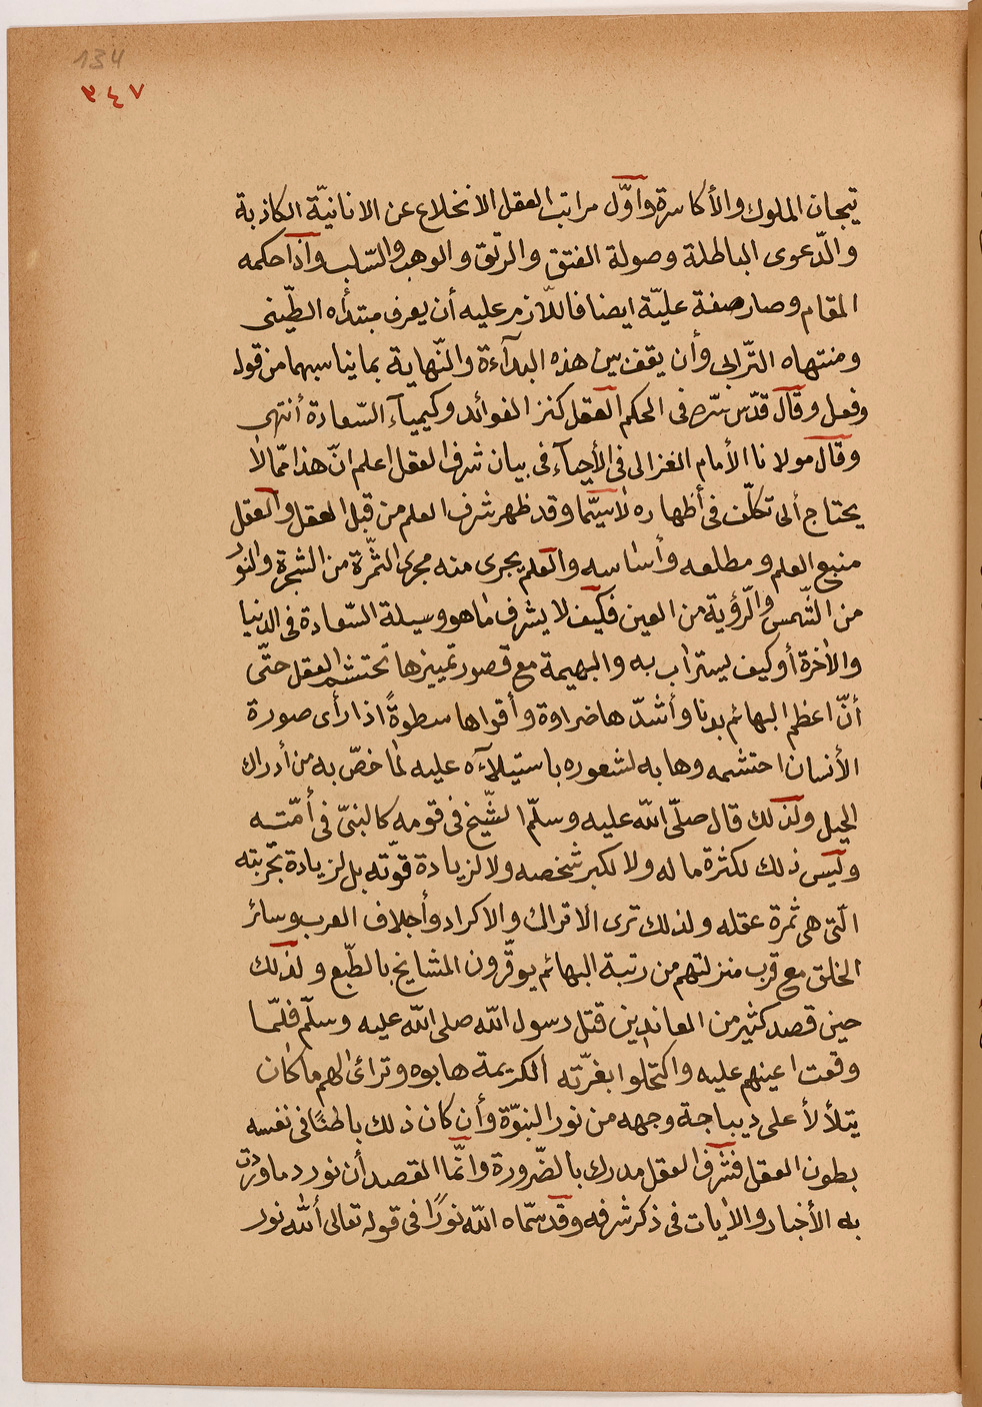 134
٣٤٧
تيجان الملوك والأكاسرة وأوّل مراتب العقل الانخلاع عن الانانيّة الكاذبة
والدّعوى الباطلة وصولة الفتق والرتق والوهب والسّلب واذا حكمه
المقام وصار صفة عليّة ايضا فاللّازم عليه أن يعرف مبتدأه الطّينى
ومنتهاه التّرابى وأن يقف بين هذه البدآءة والنّهاية بما يناسبهما من قول
وفعل وقال قدّس سّره فى الحكم العقل كنز الفوائد وكيميآء السّعادة أنتهى
وقال مولانا الأمام الغزالى فى الأحيآء فى بيان شرف العقل اعلم انّ هذا ممّا لا
يحتاج ألى تكلّف فى أظهاره لاسيّما وقد ظهر شرف العلم من قبل العقل والعقل
منبع العلم ومطلعه وأساسه والعلم يجرى منه مجرى الثّمرة من الشّجرة والنور
من الشّمس والرّؤية من العين فكيف لا يشرف ما هو وسيلة السّعادة فى الدنيا
والاخرة أو كيف يستراب به والبهيمة مع قصور تمييزها تحتشم العقل حتّى
أنّ اعظم البهائم بدنا وأشدّها ضراوة وأقواها سطوةً اذا رأى صورة
الأنسان احتشمه وهابه لشعوره باستيلآءه عليه لما خصّ به من أدراك
الحيل ولذلك قال صلّى الله عليه وسلّم الشّيخ فى قومه كالنبىّ فى أمّته
وليس ذلك لكثرة ماله ولا لكبر شخصه ولا لزيادة قوّته بل لزيادة تجربته
الّتى هى ثمرة عقله ولذلك ترى الاتراك والاكراد وأجلاف العرب وسائر
الخلق مع قرب منزلتهم من رتبة البهائم يوقّرون المشايخ بالطّبع ولذلك
حين قصد كثير من المعاندين قتل رسول الله صلى الله عليه وسلّم فلمّا
وقعت اعينهم عليه واكتحلوا بغرّته الكريمة هابوه وترائى لهم ما كان
يتلألأ على ديباجة وجهه من نور النبوّة وأن كان ذلك باطنًا فى نفسه
بطون العقل فشرف العقل مدرك بالضّرورة وانّما المقصد أن نورد ما وردت
به الأخبار والايات فى ذكر شرفه وقد سمّاه الله نورًا فى قوله تعالى ألله نور